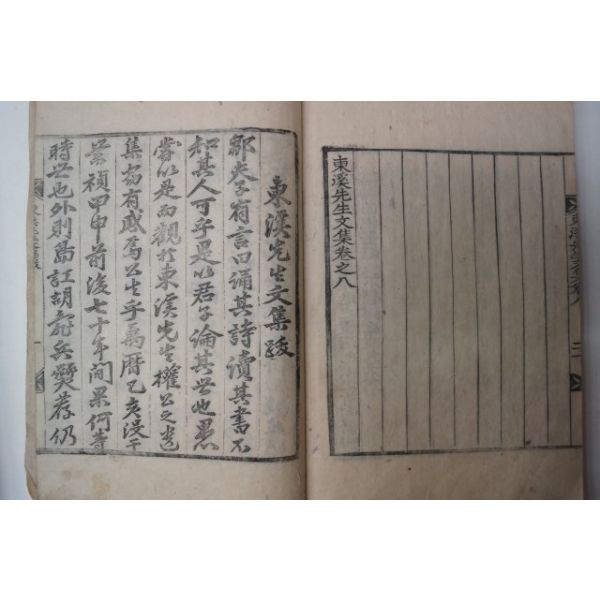 二
東溪先生文集卷之八
東溪先生文集跋
鄒夫子有言曰誦其詩讀其書不
知其人可乎是以君子論其世也愚
嘗以是而觀於東溪先生權公之遺
集窃有感焉公生乎萬曆乙亥沒于
崇禎甲申前後七十年間果何等
時世也外則島訌胡兵燹荐仍
一